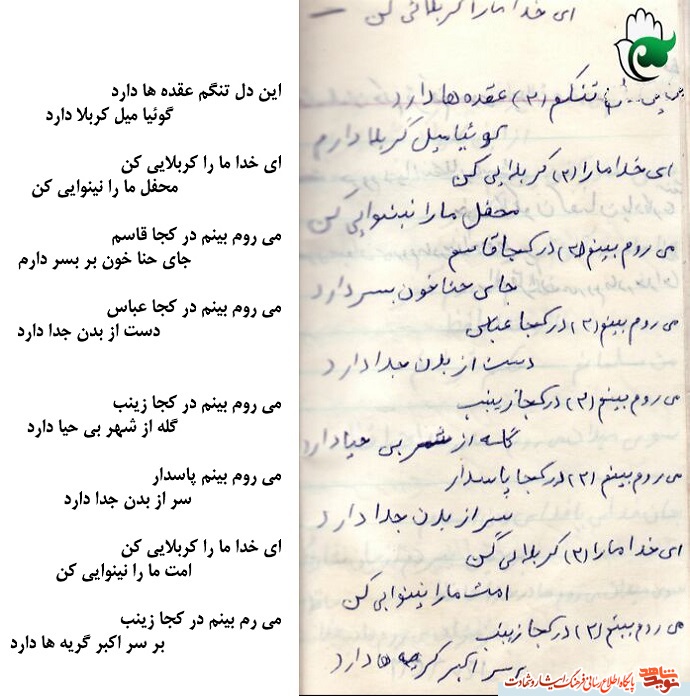 این دل تنگم عقده ها دارد
گوئیا میل کربلا دارد
ای خدا ما را کربلایی کن
محفل ما را نینوایی کن
می روم بینم در کجا قاسم
جای حنا خون بر بسر دارم
می روم بینم در کجا عباس
دست از بدن جدا دارد
می روم بینم در کجا زینب
گله از شهر بی حیا دارد
می روم بینم پاسدار
سر از بدن جدا دارد
ای خدا ما را کربلایی کن
امت ما را نینوایی کن
می رم بینم در کجا زینب
بر سر اکبر گریه ها دارد
ای خدا مارا کربلائی کن
تنگم (۲) عقده ها دارد
گوئیا میل کربلا دارم
ای خدا مارا (۲) کربلایی کن
محفل مارا نینوایی کن
می روم بینم (۲) در کجا قاسم
جای حنا خون بسر دارد
می روم بینم (۲) در کجا عباس
دست از بدن جدا دارد
می روم بینم (۲) در کجا زینب
گله از شهر بی حیا دارد
می روم بینم (۲) در کجا پاسدار
سر از بدن جدا دارد
ای خدا مارا (۲) کربلائی کن
امت مارا نینوایی کن
می روم بینم (۲) در کجا زینب
بر سر اکبر گریه ها دارد
نوید شاهد
پایگاه اطلاع رسانی فرهنگ ایثار و شهادت